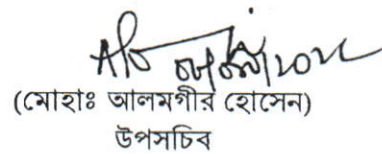 (মোহাঃ আলমগীর হোসেন)
উপসচিব